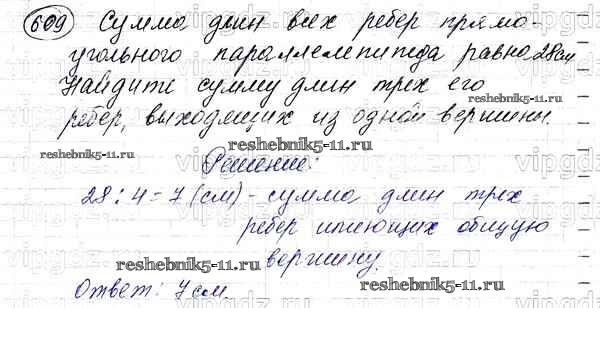 609 Сумма длин всех ребер прямо-
угольного параллелепипеда равна 28см
Найдите сумму длин трех его
ребер, выходящих из одной вершины.
reshebnik5-11.ru reshebnik5-11.ru
Решение:
28:4=7(см)-сумма длин трех
ребер имеющих общую
вершину.
reshebnik5-11.ru reshebnik5-11.ru
Ответ: 7см.